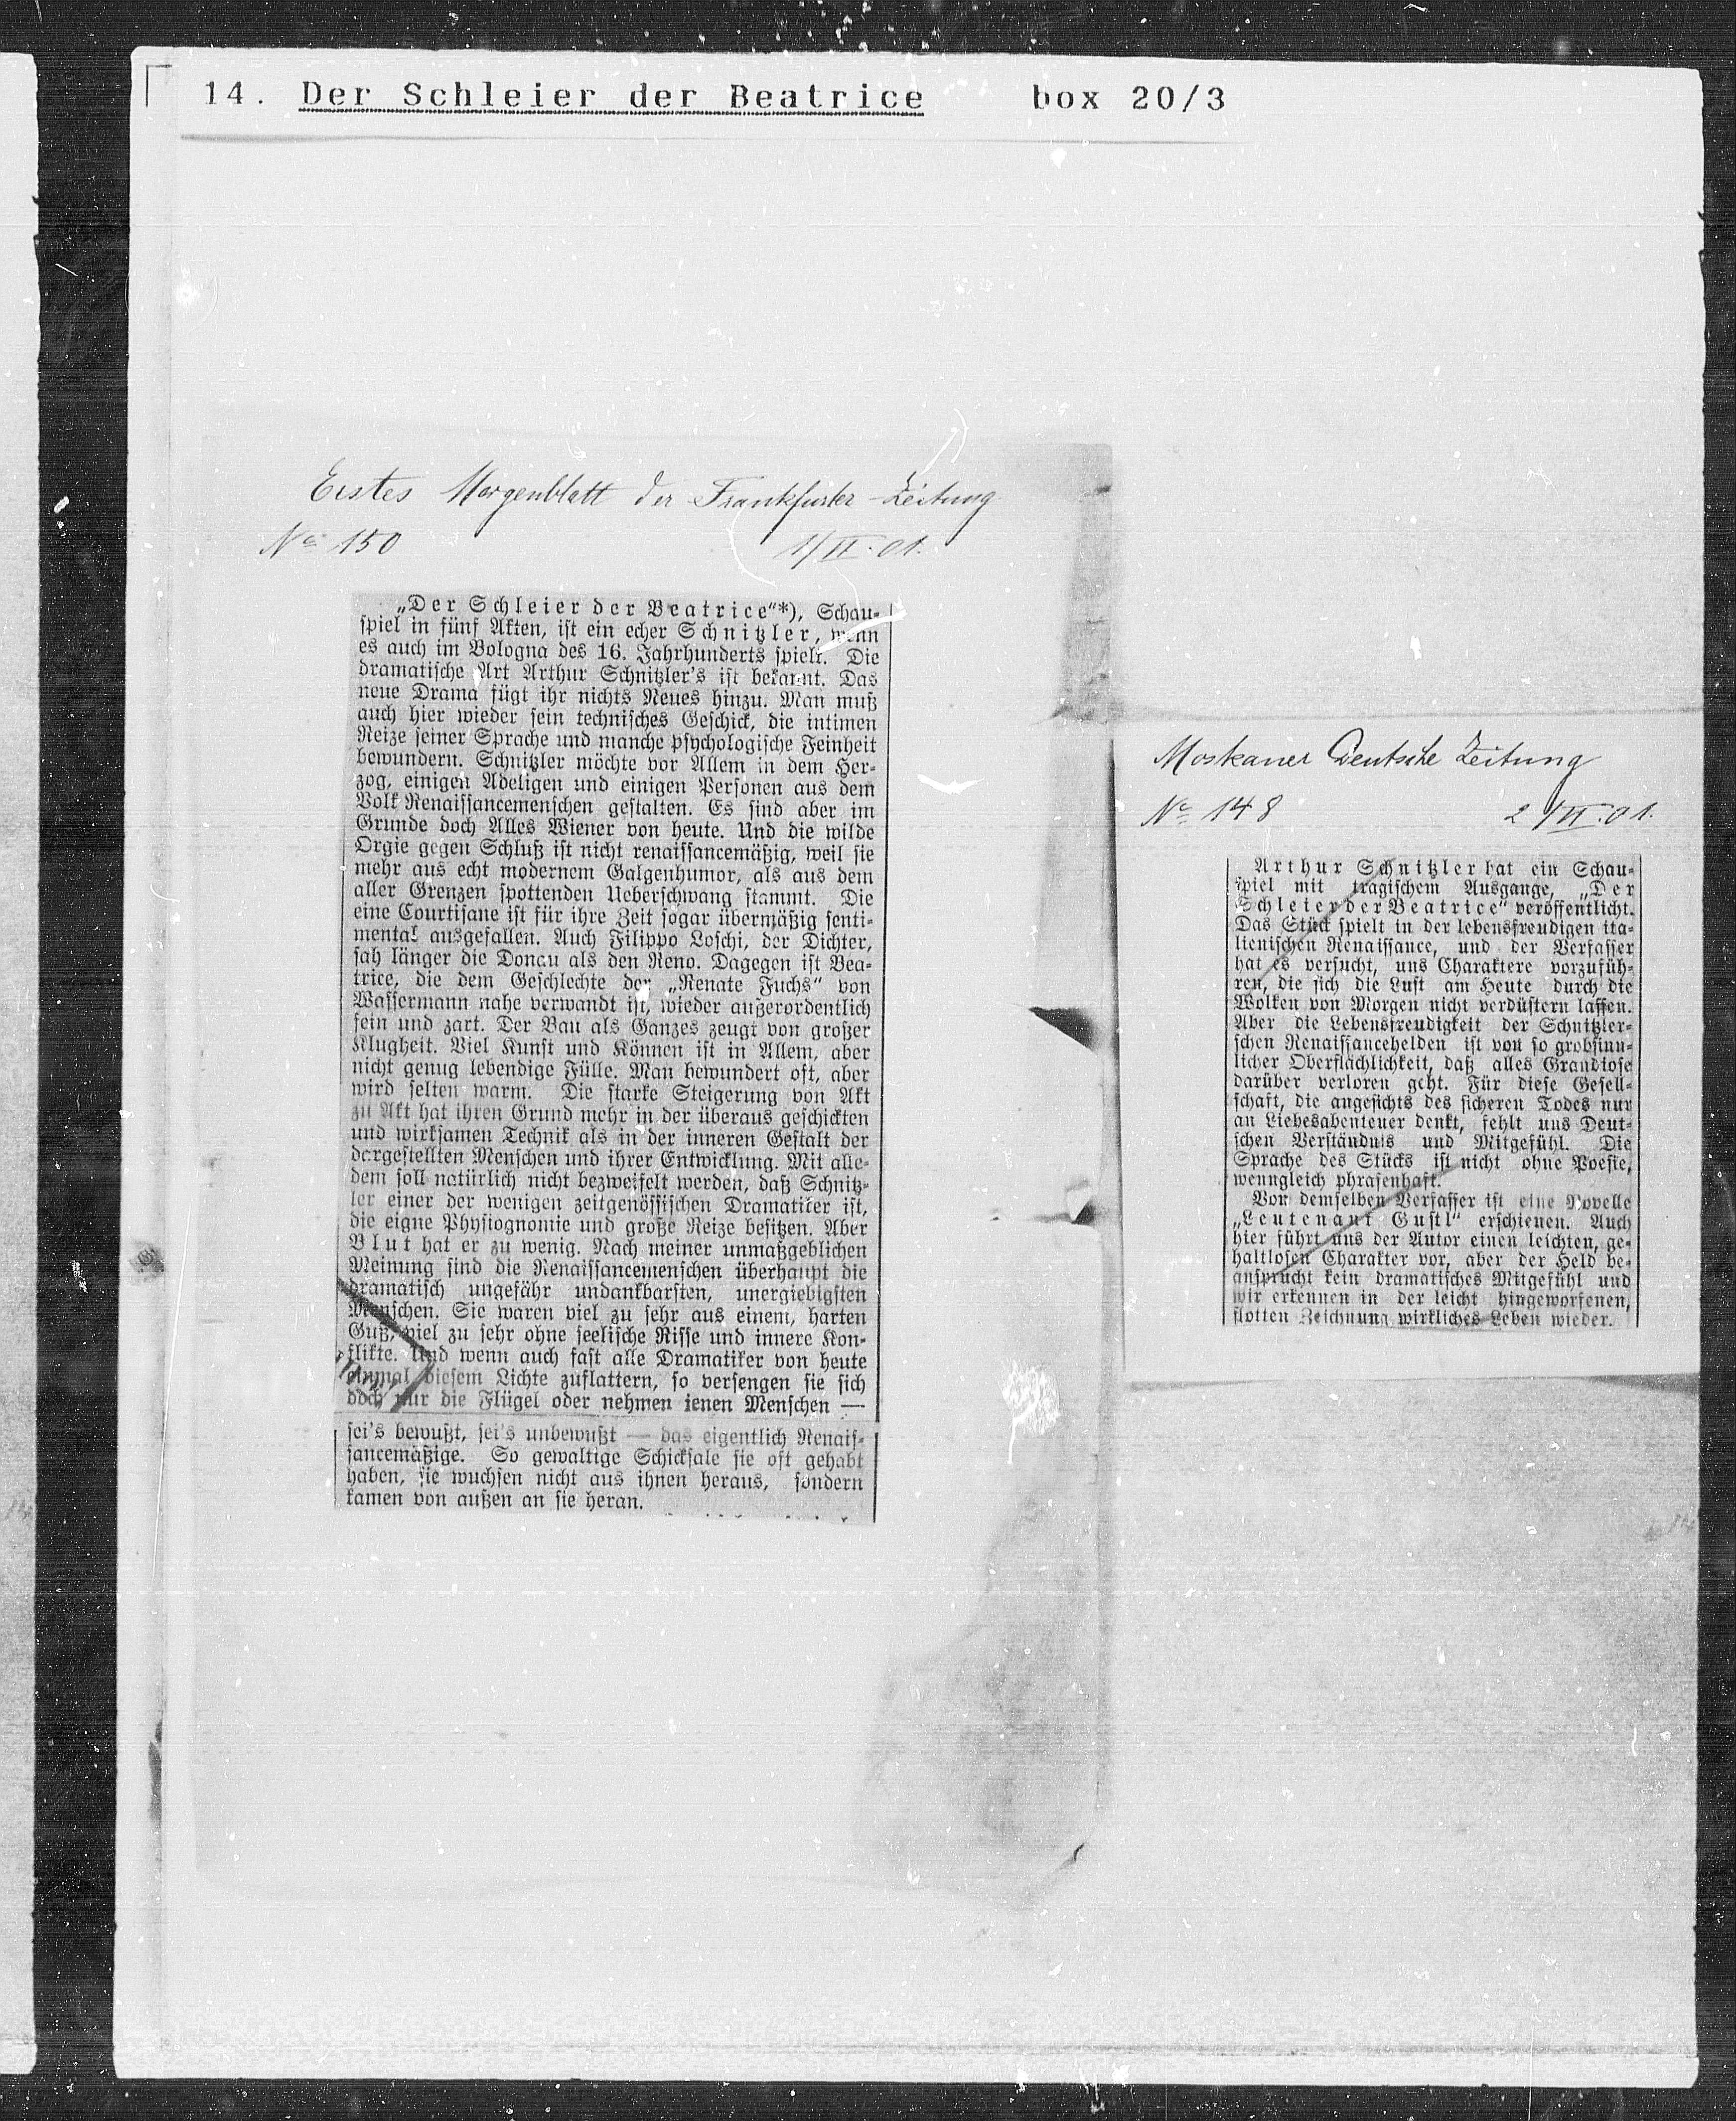 14. Der Schleier der Beatrice box 20/3
Erstes Morgenblatt der Frankfurter-Zeitung
No 150 1/VI.01.
„Der Schleier der Beatrice“*), Schau-
spiel in fünf Akten, ist ein echer Schnitzler, wenn
es auch im Bologna des 16. Jahrhunderts spielt. Die
dramatische Art Arthur Schnitzler's ist bekannt. Das
neue Drama fügt ihr nichts Neues hinzu. Man muß
auch hier wieder sein technisches Geschick, die intimen
Reize seiner Sprache und manche psychologische Feinheit
bewundern. Schnitzler möchte vor Allem in dem Her-
zog, einigen Adeligen und einigen Personen aus dem
Volk Renaissancemenschen gestalten. Es sind aber im
Grunde doch Alles Wiener von heute. Und die wilde
Orgie gegen Schluß ist nicht renaissancemäßig, weil sie
mehr aus echt modernem Galgenhumor, als aus dem
aller Grenzen spottenden Ueberschwang stammt. Die
eine Courtisane ist für ihre Zeit sogar übermäßig senti-
mental ausgefallen. Auch Filippo Loschi, der Dichter,
sah länger die Donau als den Reno. Dagegen ist Bea-
trice, die dem Geschlechte der „Renate Fuchs“ von
Wassermann nahe verwandt ist, wieder außerordentlich
fein und zart. Der Bau als Ganzes zeugt von großer
Klugheit. Viel Kunst und Können ist in Allem, aber
nicht genug lebendige Fülle. Man bewundert oft, aber
wird selten warm. Die starke Steigerung von Akt
zu Akt hat ihren Grund mehr in der überaus geschickten
und wirksamen Technik als in der inneren Gestalt der
dargestellten Menschen und ihrer Entwicklung. Mit alle-
dem soll natürlich nicht bezweifelt werden, daß Schnitz-
ler einer der wenigen zeitgenössischen Dramatiker ist,
die eigne Physiognomie und große Reize besitzen. Aber
Blut hat er zu wenig. Nach meiner unmaßgeblichen
Meinung sind die Renaissancemenschen überhaupt die
dramatisch ungefähr undankbarsten, unergiebigsten
Menschen. Sie waren viel zu sehr aus einem, harten
Guß, viel zu sehr ohne seelische Risse und innere Kon-
flikte. Und wenn auch fast alle Dramatiker von heute
einmal diesem Lichte zuflattern, so versengen sie sich
doch nur die Flügel oder nehmen jenen Menschen —
sei's bewußt, sei's unbewußt — das eigentlich Renais-
sancemäßige. So gewaltige Schicksale sie oft gehabt
haben, sie wuchsen nicht aus ihnen heraus, sondern
kamen von außen an sie heran.
Moskauer Deutsche Zeitung
No 148 2/VI.01.
Arthur Schnitzler hat ein Schau-
spiel mit tragischem Ausgange, „Der
Schleier der Beatrice“ veröffentlicht.
Das Stück spielt in der lebensfreudigen ita-
lienischen Renaissance, und der Verfasser
hat es versucht, uns Charaktere vorzufüh-
ren, die sich die Lust am Heute durch die
Wolken von Morgen nicht verdüstern lassen.
Aber die Lebensfreudigkeit der Schnitzler-
schen Renaissancehelden ist von so grobsinn-
licher Oberflächlichkeit, daß alles Grandiose
darüber verloren geht. Für diese Gesell-
schaft, die angesichts des sicheren Todes nur
an Liebesabenteuer denkt, fehlt uns Deut-
schen Verständnis und Mitgefühl. Die
Sprache des Stücks ist nicht ohne Poesie,
wenngleich phrasenhaft.
Von demselben Verfasser ist eine Novelle
„Leutenant Gustl“ erschienen. Auch
hier führt uns der Autor einen leichten, ge-
haltlosen Charakter vor, aber der Held be-
ansprucht kein dramatisches Mitgefühl und
wir erkennen in der leicht hingeworfenen,
flotten Zeichnung wirkliches Leben wieder.